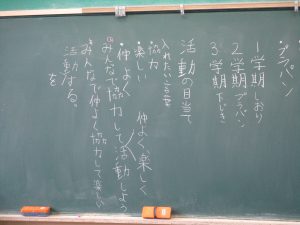 ・プラバン
1学期 しおり
2学期 プラバン
3学期 下じき
活動の目当て
入れたい言葉
・協力
・楽しい 仲よく、楽しく
・仲よく
・みんなで協力して活動しよう
・みんなで仲よく協力して楽しい
活動する。
を